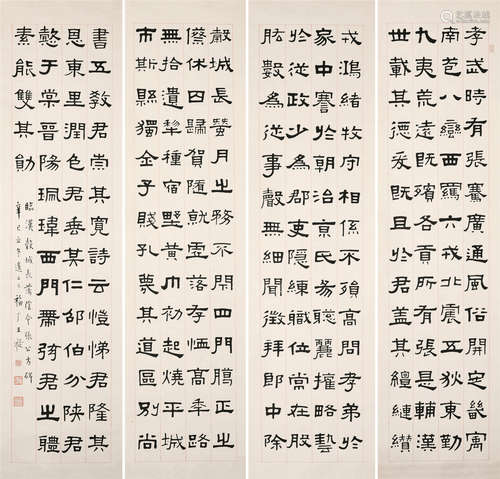 孝武時有張騫廣通風俗開定畿寓
南苞八蠻西羈六戎北震五狄東勤
九夷荒遠既殯各貢所有張是輔漢
世載其德爰既且於君蓋其纏縺纘
戎鴻緒牧守相係不殞高問孝弟於
家中謇於朝治京氏易聰麗權略藝
於從政少為郡吏隱練職位常在股
肱數為從事聲無細聞徵拜郎中除
穀城長蠶月之務不閉四門臘正之
僚休囚歸賀隨就虛落存恤高年路
無拾遺犁種宿野黃巾初起燒平城
市斯縣獨全子賤孔蔑其道區別尚
書五教君崇其寬詩云愷悌君隆其
恩東里潤色君垂其仁邵伯分陝君
懿于棠晉陽珮瑋西門帶弦君之體
素能雙其勛
臨漢穀城長蕩陰令張公方碑
辛巳 福厂王禔